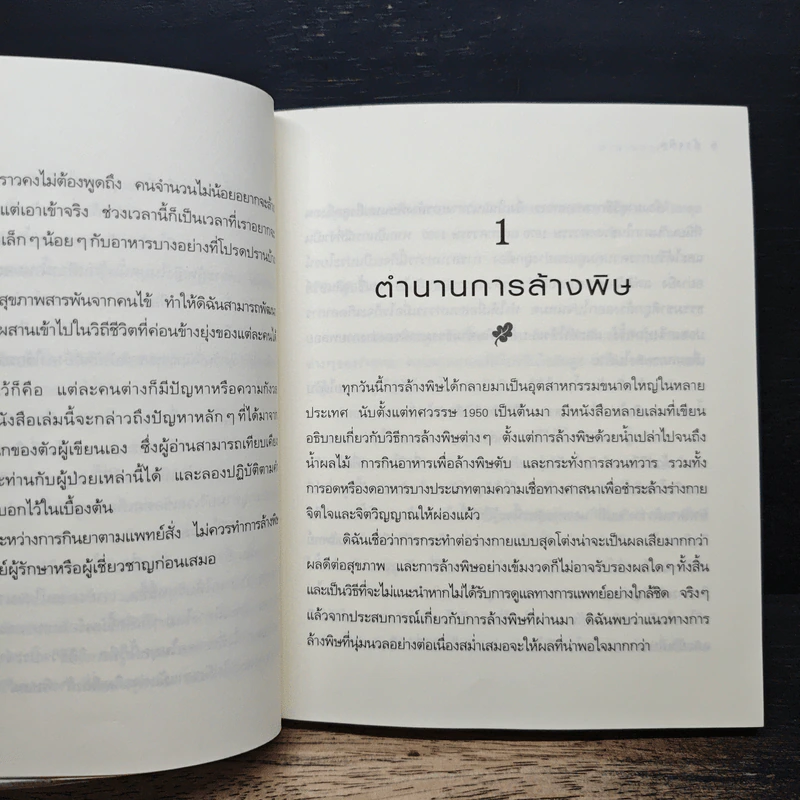 ราวคงไม่ต้องพูดถึง คนจำนวนไม่น้อยอยากจะล้าง
แต่เอาเข้าจริง ช่วงเวลานี้ก็เป็นเวลาที่เราอยากจะ
เล็กๆ น้อยๆ กับอาหารบางอย่างที่โปรดปรานบ้าง
สุขภาพสารพันจากคนไข้ ทำให้ดิฉันสามารถพัฒนา
ผสานเข้าไปในวิถีชีวิตที่ค่อนข้างยุ่งของแต่ละคนได้
ว้ก็คือ แต่ละคนต่างก็มีปัญหาหรือความกังวล
นังสือเล่มนี้จะกล่าวถึงปัญหาหลักๆ ที่ได้มาจาก
กของตัวผู้เขียนเอง ซึ่งผู้อ่านสามารถเทียบเคียง
ะท่านกับผู้ป่วยเหล่านี้ได้ และลองปฏิบัติตาม
บอกไว้ในเบื้องต้น
ะหว่างการกินยาตามแพทย์สั่ง ไม่ควรทำการล้างพิษ
ย์ผู้รักษาหรือผู้เชี่ยวชาญก่อนเสมอ
1
ตำนานการล้างพิษ
ทุกวันนี้การล้างพิษได้กลายมาเป็นอุตสาหกรรมขนาดใหญ่ในหลาย
ประเทศ นับตั้งแต่ทศวรรษ 1950 เป็นต้นมา มีหนังสือหลายเล่มที่เขียน
อธิบายเกี่ยวกับวิธีการล้างพิษต่างๆ ตั้งแต่การล้างพิษด้วยน้ำเปล่าไปจนถึง
น้ำผลไม้ การกินอาหารเพื่อล้างพิษตับ และกระทั่งการสวนทวาร รวมทั้ง
การอดหรืองดอาหารบางประเภทตามความเชื่อทางศาสนาเพื่อชำระล้างร่างกาย
จิตใจและจิตวิญญาณให้ผ่องแผ้ว
ดิฉันเชื่อว่าการกระทำต่อร่างกายแบบสุดโต่งน่าจะเป็นผลเสียมากกว่า
ผลดีต่อสุขภาพ และการล้างพิษอย่างเข้มงวดก็ไม่อาจรับรองผลใดๆ ทั้งสิ้น
และเป็นวิธีที่จะไม่แนะนำหากไม่ได้รับการดูแลทางการแพทย์อย่างใกล้ชิด จริงๆ
แล้วจากประสบการณ์เกี่ยวกับการล้างพิษที่ผ่านมา ดิฉันพบว่าแนวทางการ
ล้างพิษที่นุ่มนวลอย่างต่อเนื่องสม่ำเสมอจะให้ผลที่น่าพอใจมากกว่า